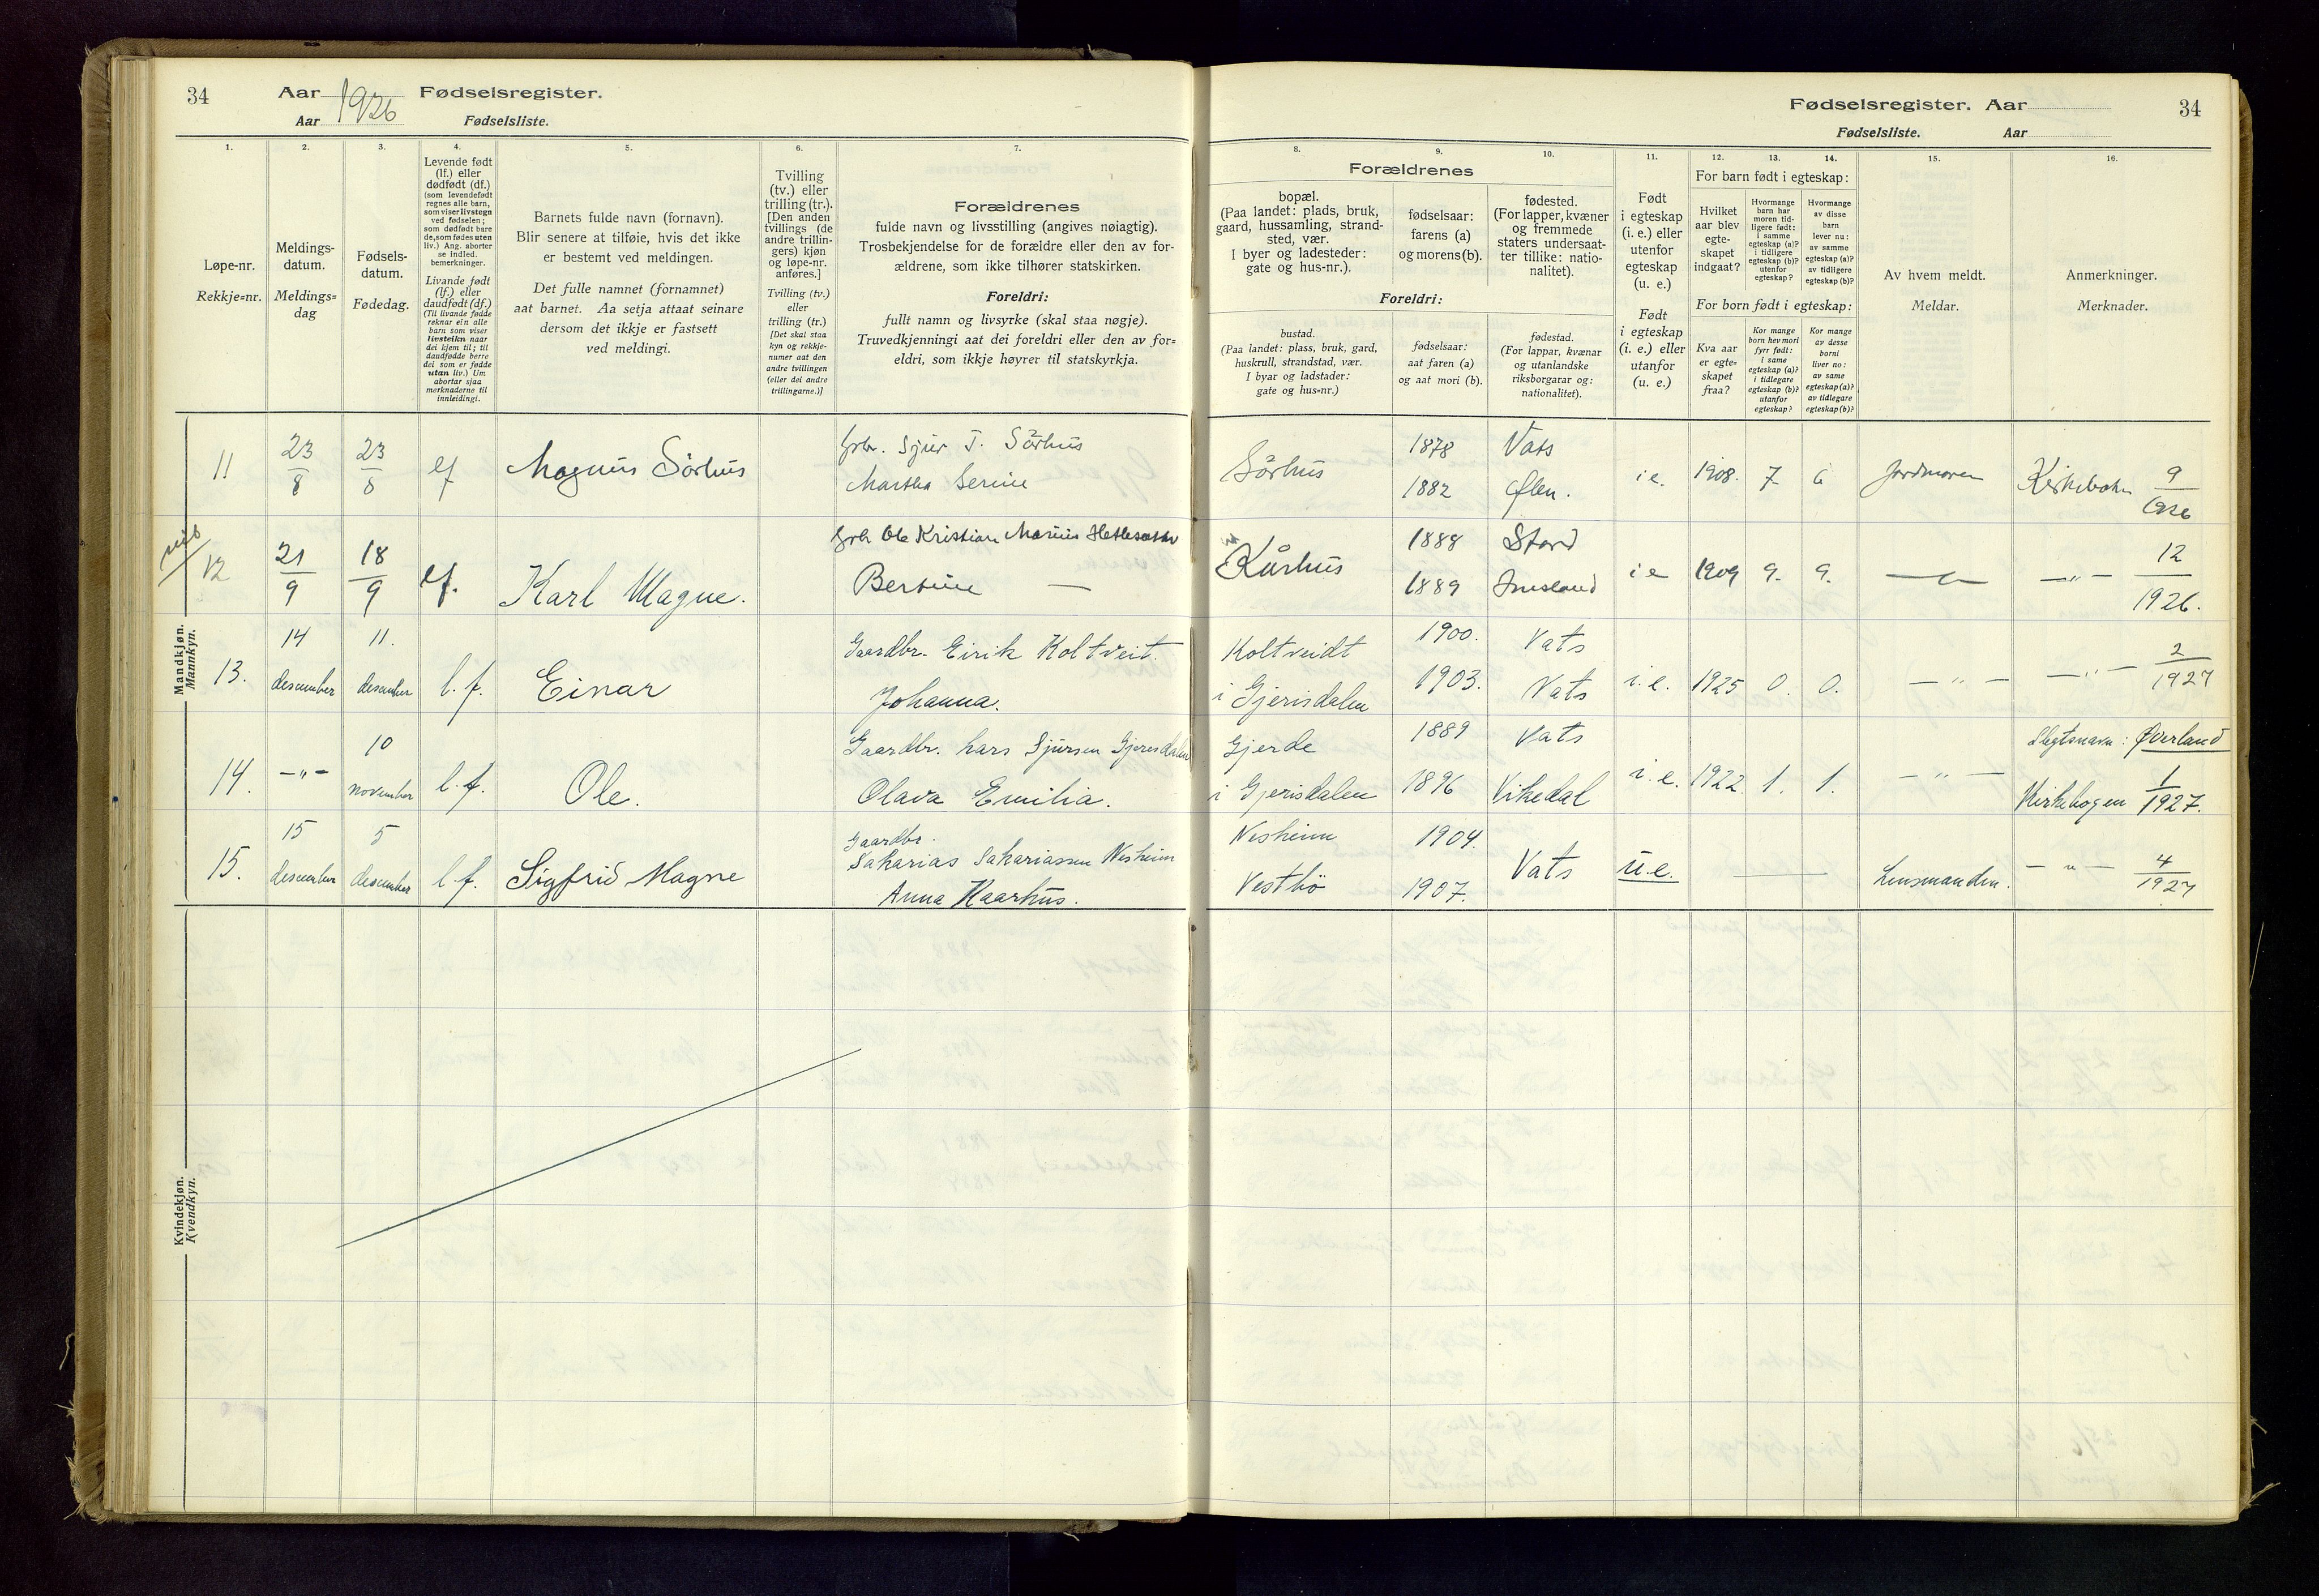 34 Aar 1926 Fødselsregister.
Aar Fødselsliste.
Fødselsregister. Aar 34
Fødselsliste. Aar
1. 2. 3. 4. 5. 6. 7. 8. 9. 10. 11. 12. 13. 14. 15. 16.
Løpe-nr.
Rekkje=nr.
Meldings-
datum.
Meldings=
dag
Fødsels-
datum.
Fødedag.
Levende født
(lf.) eller
dødfødt (df.)
(som levendefødt
regnes alle barn,
som viser livstegn
ved fødselen;
som dødfødt bare
de, som fødes uten
liv.) Ang. aborter
se indled.
bemerkninger.
Livande født
(lf.) eller
daudfødt (df.)
(Til livande fødde
reknar ein alle
barn som viser
livsteikn naar
dei kjem til; til
daudfødde berre
dei som er fødde
utan liv.) Um
abortar sjaa
merknaderne til
innleidingi.
Barnets fulde navn (fornavn).
Blir senere at tilføie, hvis det ikke
er bestemt ved meldingen.
Det fulle namnet (fornamnet)
aat barnet. Aa setja attaat seinare
dersom det ikkje er fastsett
ved meldingi.
Tvilling
(tv.) eller
trilling (tr.).
[Den anden
tvillings (de
andre trillin-
gers) kjøn
og løpe-nr.
anføres.]
Tvilling (tv.)
eller
trilling (tr.)
[Det skal staa
kyn og rekkje-
numer aat den
andre tvillingen
(eller dei andre
trillingarne.)]
Forældrenes
fulde navn og livsstilling (angives nøiagtig).
Trosbekjendelse for de forældre eller den av for-
ældrene, som ikke tilhører statskirken.
Foreldri:
fullt namn og livsyrke (skal staa nøgje).
Truvedkjenningi aat dei foreldri eller den av for=
eldri, som ikkje høyrer til statskyrkja.
Forældrenes
bopæl.
(Paa landet: plads, bruk,
gaard, hussamling, strand-
sted, vær.
I byer og ladesteder:
gate og hus-nr.).
fødselsaar:
farens (a)
og morens (b).
fødested.
(For lapper, kvæner
og fremmede
staters undersaat-
ter tillike: natio-
nalitet).
Foreldri:
bustad.
(Paa landet: plass, bruk, gard,
huskrull, strandstad, vær.
I byar og ladstader:
gate og hus=nr.)
fødselsaar:
aat faren (a)
og aat mori (b).
fødestad.
(For lappar, kvænar
og utanlandske
riksborgarar og:
nationalitet).
Født
i egteskap
(i. e.) eller
utenfor
egteskap
(u. e.)
Født
i egteskap
(i. e.) eller
utanfor
(u. e.)
For barn født i egteskap:
Hvilket
aar blev
egte-
skapet
indgaat?
Hvormange
barn har
moren tid-
ligere født:
i samme
egteskap (a)?
i tidligere
egteskap (b)?
utenfor
egteskap?
Hvormange
av disse
barn
lever nu:
av samme
egteskap (a)?
av tidligere
egteskap (b)?
For born født i egteskap:
Kva aar
er egte-
skapet
fraa?
Kor mange
born hev mori
fyrr født:
i same
egteskap (a)?
i tidlegare
egteskap (b)?
utanfor
egteskap?
Kor mange
av desse
borni
liver no:
av same
egteskap (a)?
av tidlegare
egteskap (b)?
Av hvem meldt.
Meldar.
Anmerkninger.
Merknader.
Mandkjøn.
Mannkyn.
11 23/8 23/8 lf Magnus Sørhus Gbr. Sjur T. Sørhus
Martha Serine
Sørhus 1878 Vats
1882 Ølen. i e. 1908. 7 6 Jordmoren Kirkeboken 9/1926
12 21/9 18/9 lf. Karl Magne. Gbr Ole Kristian Marius
Bertine —
Kårhus 1888 Stord
1889 i e 1909 9. 9. —"— —"— 12/1926.
13. 14 desember 11. desember l.f. Einar Gaardbr. Eirik Koltveit.
Johanna.
Koltveidt 1900. Vats
i Gjerisdalen 1903. Vats i.e. 1925 0. 0. —"— —"— 2/1927
14. —"— 10 november l.f. Ole. Gaardbr. Lars Sjursen Gjerisdalen
Olava Emilia.
Gjerde 1889 Vats
i Gjerisdalen 1896 Vikedal i.e. 1922. 1. 1. —"— Slegtsnavn: Øverland
Kirkebogen 1/1927.
15. 15 desember 5 desember l.f. Sigfrid Magne Gaardbr.
Sakarias Sakariassen Nesheim
Anna Kaarhus.
Nesheim 1904.
Vestbö 1907. Vats u.e. — Lensmanden. —"— 4/1927
Kvindekjøn.
Kvendkyn.